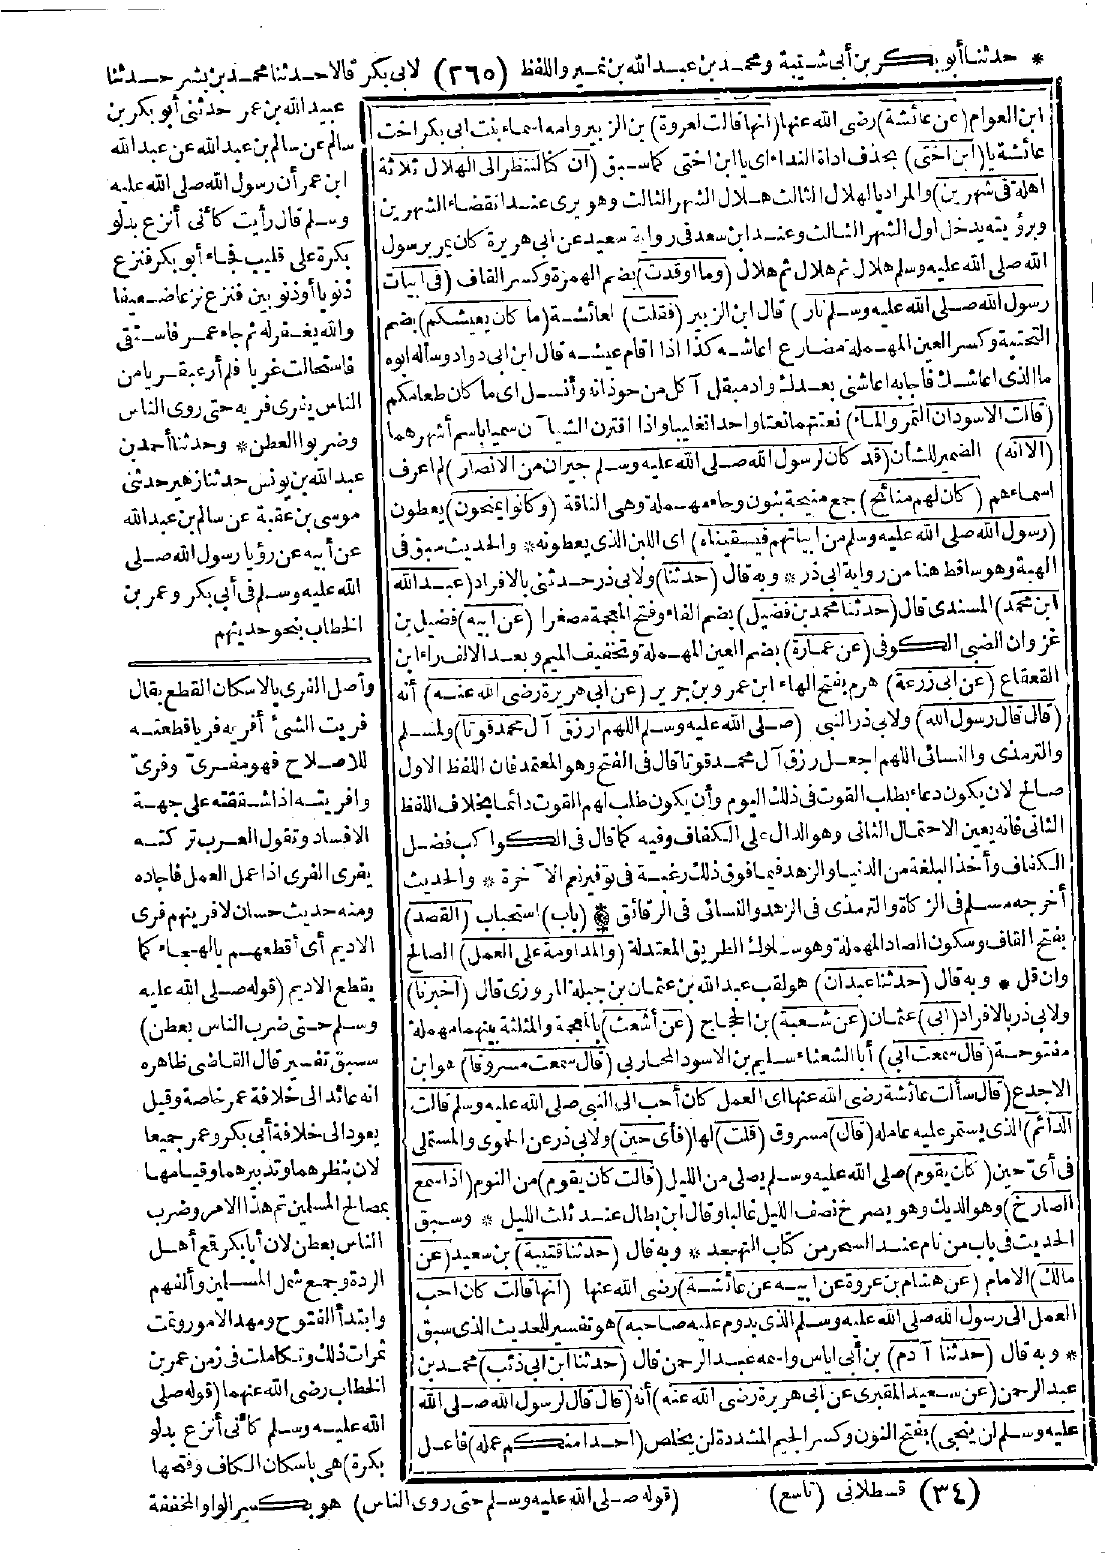 * حدثنا أبو بكر بن أبى شيبة ومحمد بن عبد الله بن نمير واللفظ (٢٦٥) لابى بكر قالا حدثنا محمد بن بشر حدثنا
ابن العوام (عن عائشة) رضى الله عنها (انها قالت لعروة) بن الزبير وامه اسماء بنت ابى بكر اخت
عائشة يا (ابن اختى) بحذف اداة النداء اى يا ابن اختى كما سبق (ان كنا لننظر الى الهلال ثلاثة
اهلة فى شهرين) والمراد بالهلال الثالث هلال الشهر الثالث وهو يرى عند انقضاء الشهرين
وبرؤيته يدخل اول الشهر الثالث وعند ابن سعد فى رواية سعيد عن ابى هريرة كان يمر برسول
الله صلى الله عليه وسلم هلال ثم هلال ثم هلال (وما اوقدت) بضم الهمزة وكسر القاف (فى ابيات
رسول الله صلى الله عليه وسلم نار) قال ابن الزبير (فقلت) لعائشة (ما كان يعيشكم) بضم
التحتية وكسر العين المهملة مضارع اعاشه كذا اذا اقام عيشه قال ابن ابى دواد وسأله ابوه
ما الذى اعاشك فاجابه اعاشنى بعدك واد مبقل * آكل من حوذانه وأنسل اى ما كان طعامكم
(قالت الاسودان التمر والماء) نعتتهما نعتا واحدا تغليبا واذا اقترن الشيآن سميا باسم أشهرهما
(الا انه) الضمير للشأن (قد كان لرسول الله صلى الله عليه وسلم جيران من الانصار) لم اعرف
اسماءهم (كان لهم منائح) جمع منيحة بنون وحاء مهملة وهى الناقة (وكانوا يمنحون) يعطون
(رسول الله صلى الله عليه وسلم من ابياتهم فيسقيناه) اى اللبن الذى يعطونه * والحديث سبق فى
الهبة وهو ساقط هنا من رواية ابى ذر * وبه قال (حدثنا) ولابى ذر حدثنى بالافراد (عبد الله
ابن محمد) المسندى قال (حدثنا محمد بن فضيل) بضم الفاء وفتح المعجمة مصغرا (عن ابيه) فضيل بن
غزوان الضبى الكوفى (عن عمارة) بضم العين المهملة وتخفيف الميم وبعد الالف راء ابن
القعقاع (عن ابى زرعة) هرم بفتح الهاء ابن عمرو بن جرير (عن ابى هريرة رضى الله عنه) أنه
(قال قال رسول الله) ولابى ذر النبى (صلى الله عليه وسلم اللهم ارزق آل محمد قوتا) ولمسلم
والترمذى والنسائى اللهم اجعل رزق آل محمد قوتا قال فى الفتح وهو المعتمد فان اللفظ الاول
صالح لان يكون دعاء بطلب القوت فى ذلك اليوم وأن يكون طلب لهم القوت دائما بخلاف اللفظ
الثانى فانه يعين الاحتمال الثانى وهو الدال على الكفاف وفيه كما قال فى الكواكب فضل
الكفاف وأخذ البلغة من الدنيا والزهد فيما فوق ذلك رغبة فى توفير نعم الآخرة * والحديث
أخرجه مسلم فى الزكاة والترمذى فى الزهد والنسائى فى الرقائق * (باب) استحباب (القصد)
بفتح القاف وسكون الصاد المهملة وهو سلوك الطريق المعتدلة (والمداومة على العمل) الصالح
وان قل * وبه قال (حدثنا عبدان) هو لقب عبد الله بن عثمان بن جبلة المروزى قال (اخبرنا)
ولابى ذر بالافراد (ابى) عثمان (عن شعبة) بن الحجاج (عن أشعث) بالمعجمة والمثلثة بينهما مهملة
مفتوحة (قال سمعت ابى) أبا الشعثاء سليم بن الاسود المحاربى (قال سمعت مسروقا) هو ابن
الاجدع (قال سألت عائشة رضى الله عنها اى العمل كان أحب الى النبى صلى الله عليه وسلم قالت
الدائم) الذى يستمر عليه عامله (قال) مسروق (قلت) لها (فأى حين) ولابى ذر عن الحموى والمستملى
فى أى حين (كان يقوم) صلى الله عليه وسلم يصلى من الليل (قالت كان يقوم) من النوم (اذا سمع
الصارخ) وهو الديك وهو يصرخ نصف الليل غالبا وقال ابن بطال عند ثلث الليل * وسبق
الحديث فى باب من نام عند السحر من كتاب التهجد * وبه قال (حدثنا قتيبة) بن سعيد (عن
مالك) الامام (عن هشام بن عروة عن ابيه عن عائشة) رضى الله عنها (انها قالت كان احب
العمل الى رسول الله صلى الله عليه وسلم الذى يدوم عليه صاحبه) هو تفسير للحديث الذى سبق
* وبه قال (حدثنا آدم) بن أبى اياس واسمه عبد الرحمن قال (حدثنا ابن ابى ذئب) محمد بن
عبد الرحمن (عن سعيد المقبرى عن ابى هريرة رضى الله عنه) أنه (قال قال رسول الله صلى الله
عليه وسلم لن ينجى) بفتح النون وكسر الجيم المشددة لن يخلص (احدا منكم عمله) فاعل
عبيد الله بن عمر حدثنى أبو بكر بن
سالم عن سالم بن عبد الله عن عبد الله
ابن عمر أن رسول الله صلى الله عليه
وسلم قال رأيت كأنى أنزع بدلو
بكرة على قليب فجاء أبو بكر فنزع
ذنوبا أو ذنوبين فنزع نزعا ضعيفا
والله يغفر له ثم جاء عمر فاستقى
فاستحالت غربا فلم أر عبقريا من
الناس يفرى فريه حتى روى الناس
وضربوا العطن * وحدثنا أحمد بن
عبد الله بن يونس حدثنا زهير حدثنى
موسى بن عقبة عن سالم بن عبد الله
عن أبيه عن رؤيا رسول الله صلى
الله عليه وسلم فى أبى بكر وعمر بن
الخطاب بنحو حديثهم
وأصل الفرى بالاسكان القطع يقال
فريت الشئ أفريه فريا قطعته
للاصلاح فهو مفرى وفرى
وافريته اذا شققته على جهة
الافساد وتقول العرب تركته
يفرى الفرى اذا عمل العمل فأجاده
ومنه حديث حسان لافرينهم فرى
الاديم أى أقطعهم بالهجاء كما
يقطع الاديم (قوله صلى الله عليه
وسلم حتى ضرب الناس بعطن)
سبق تفسير قال القاضى ظاهره
انه عائد الى خلافة عمر خاصة وقيل
يعود الى خلافة أبى بكر وعمر جميعا
لان بنظرهما وتدبيرهما وقيامهما
بمصالح المسلمين تم هذا الامر وضرب
الناس بعطن لان أبا بكر قمع أهل
الردة وجمع شمل المسلمين وألفهم
وابتدأ الفتوح ومهد الامور وتمت
ثمرات ذلك وتكاملت فى زمن عمر بن
الخطاب رضى الله عنهما (قوله صلى
الله عليه وسلم كأنى أنزع بدلو
بكرة) هى باسكان الكاف وفتحها
(٣٤) قسطلانى (تاسع) (قوله صلى الله عليه وسلم حتى روى الناس) هو بكسر الواو المخففة